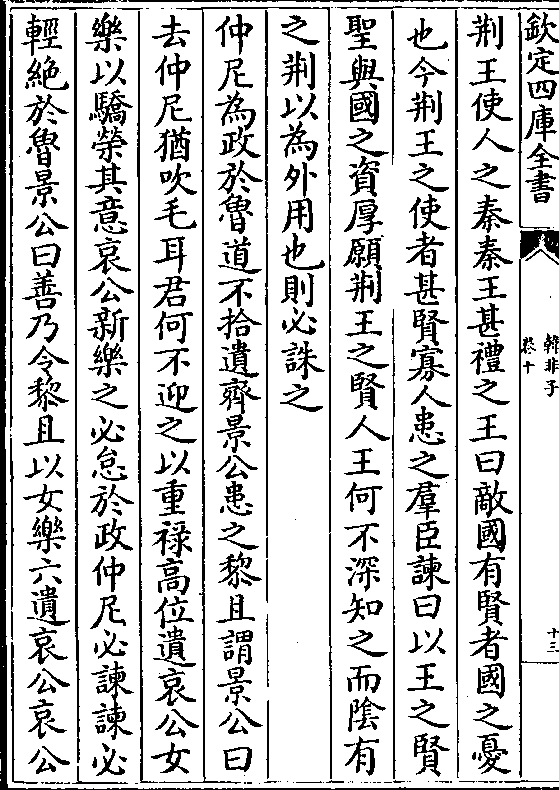 欽定四庫全書
韓非子
卷十
十三
荆王使人之秦秦王甚禮之王曰敵國有賢者國之憂
也今荆王之使者甚賢寡人患之羣臣諫曰以王之賢
聖與國之資厚願荆王之賢人王何不深知之而陰有
之荆以為外用也則必誅之
仲尼為政於魯道不拾遺齊景公患之黎且謂景公曰
去仲尼猶吹毛耳君何不迎之以重禄高位遺哀公女
樂以驕榮其意哀公新樂之必怠於政仲尼必諫諫必
輕絶於魯景公曰善乃令黎且以女樂六遺哀公哀公